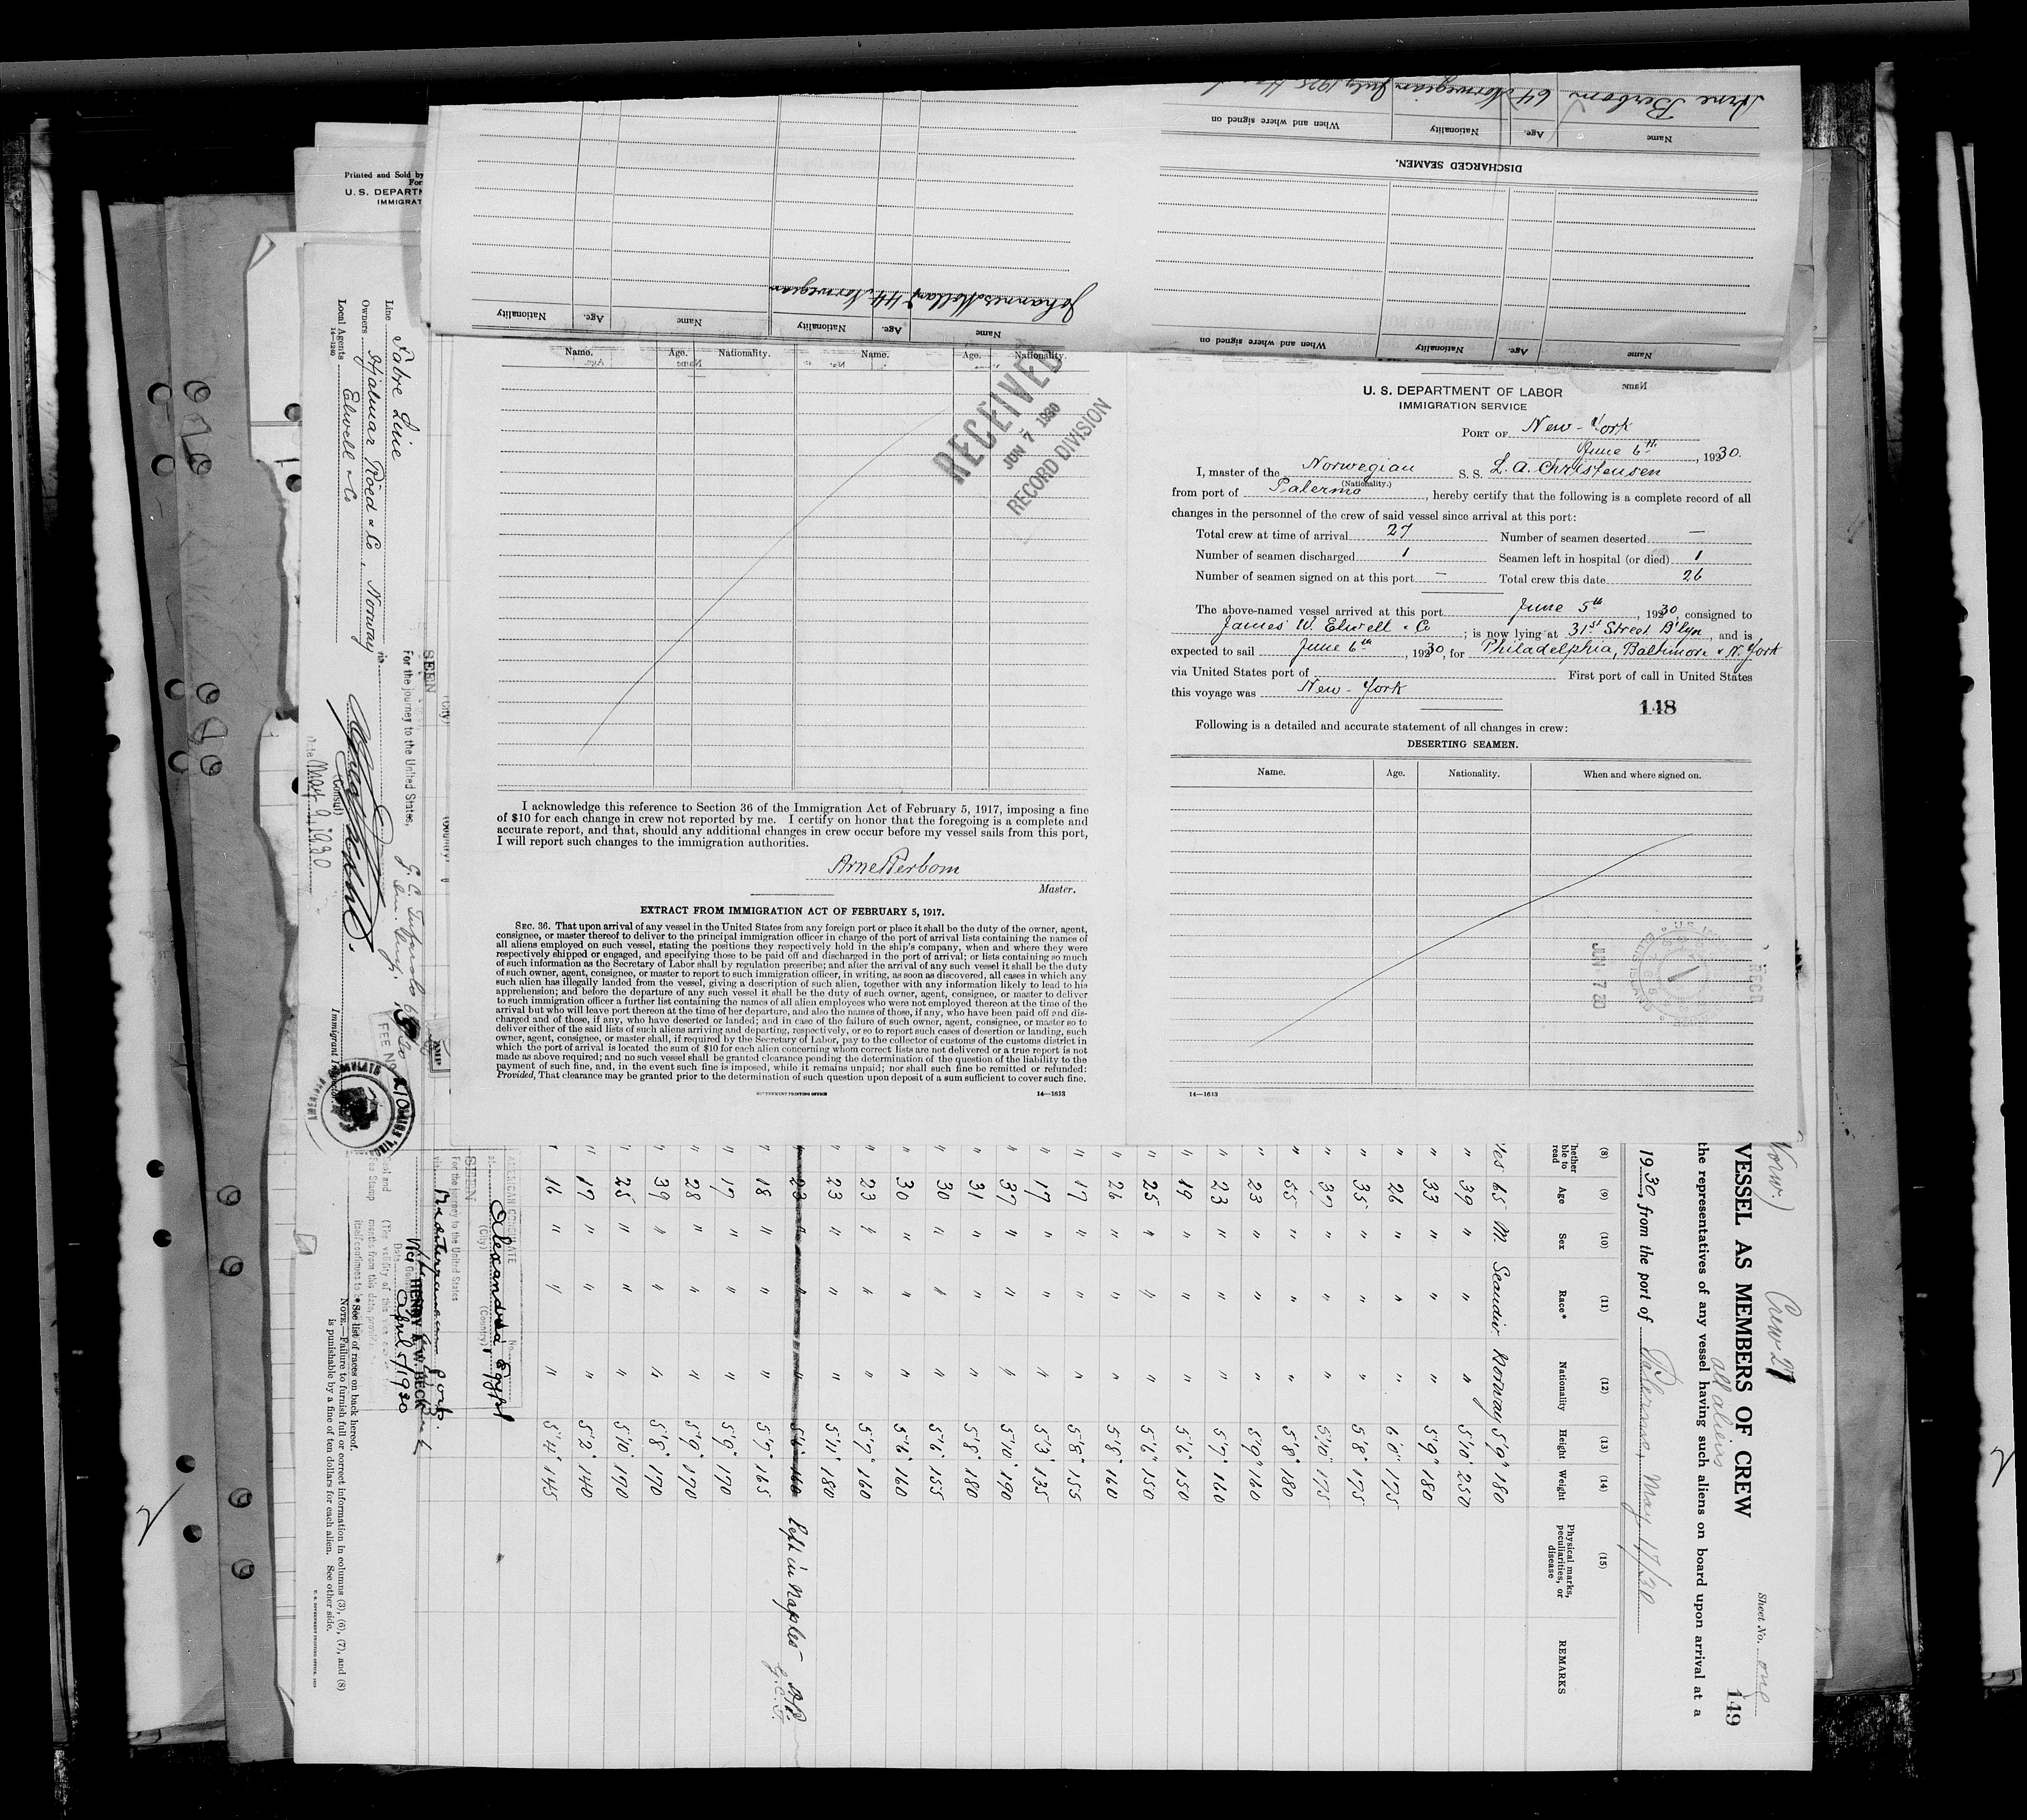 Arne Berbom 64 Norwegian July 1925
Name Age. Nationality When and where signed on
DISCHARGED SEAMEN.
Name Age. Nationality When and where signed on
Johannes 44 Norwegian
Name Age. Nationality Name Age. Nationality
Name. Age. Nationality. Name. Age. Nationality.
RECEIVED
JUN 7 1930
RECORD DIVISION
I acknowledge this reference to Section 36 of the Immigration Act of February 5, 1917, imposing a fine
of $10 for each change in crew not reported by me. I certify on honor that the foregoing is a complete and
accurate report, and that, should any additional changes in crew occur before my vessel sails from this port,
I will report such changes to the immigration authorities.
Arne Berbom
Master.
EXTRACT FROM IMMIGRATION ACT OF FEBRUARY 5, 1917.
SEC. 36. That upon arrival of any vessel in the United States from any foreign port or place it shall be the duty of the owner, agent,
consignee, or master thereof to deliver to the principal immigration officer in charge of the port of arrival lists containing the names of
all aliens employed on such vessel, stating the positions they respectively hold in the ship's company, when and where they were
respectively shipped or engaged, and specifying those to be paid off and discharged in the port of arrival; or lists containing so much
of such information as the Secretary of Labor shall by regulation prescribe; and after the arrival of any such vessel it shall be the duty
of such owner, agent, consignee, or master to report to such immigration officer, in writing, as soon as discovered, all cases in which any
such alien has illegally landed from the vessel, giving a description of such alien, together with any information likely to lead to his
apprehension; and before the departure of any such vessel it shall be the duty of such owner, agent, consignee, or master to deliver
to such immigration officer a further list containing the names of all alien employees who were not employed thereon at the time of the
arrival but who will leave port thereon at the time of her departure, and also the names of those, if any, who have been paid off and dis-
charged and of those, if any, who have deserted or landed; and in case of the failure of such owner, agent, consignee, or master so to
deliver either of the said lists of such aliens arriving and departing, respectively, or so to report such cases of desertion or landing, such
owner, agent, consignee, or master shall, if required by the Secretary of Labor, pay to the collector of customs of the customs district in
which the port of arrival is located the sum of $10 for each alien concerning whom correct lists are not delivered or a true report is not
made as above required; and no such vessel shall be granted clearance pending the determination of the question of the liability to the
payment of such fine, and, in the event such fine is imposed, while it remains unpaid; nor shall such fine be remitted or refunded:
Provided, That clearance may be granted prior to the determination of such question upon deposit of a sum sufficient to cover such fine.
GOVERNMENT PRINTING OFFICE 14—1613
U. S. DEPARTMENT OF LABOR
IMMIGRATION SERVICE
PORT OF New-York
June 6th, 1930.
I, master of the Norwegian S. S. L. A. Christensen
(Nationality.)
from port of Palermo, hereby certify that the following is a complete record of all
changes in the personnel of the crew of said vessel since arrival at this port:
Total crew at time of arrival 27 Number of seamen deserted —
Number of seamen discharged 1 Seamen left in hospital (or died) 1
Number of seamen signed on at this port — Total crew this date 26
The above-named vessel arrived at this port June 5th, 1930 consigned to
James W. Elwell & Co; is now lying at 31st Street B'lyn, and is
expected to sail June 6th, 1930, for Philadelphia, Baltimore & N. York
via United States port of First port of call in United States
this voyage was New-York
148
Following is a detailed and accurate statement of all changes in crew:
DESERTING SEAMEN.
Name. Age. Nationality. When and where signed on.
JUN 7 30
RECD
14—1613
Printed and Sold by
U. S. DEPARTM
IMMIGRAT
Line Fabre Line
Owners Hjalmar Röed & Co, Norway
Local Agents Elwell & Co
14—1240
SEEN
For the journey to the United States,
via
(City)
(Country)
(Consul)
Date May 9, 1930
Immigrant Inspector.
FEE NO
(Norw.) Crew 27
all aliens
Sheet No. one
149
VESSEL AS MEMBERS OF CREW
the representatives of any vessel having such aliens on board upon arrival at a
1930, from the port of Palermo, May 17/30
(8) (9) (10) (11) (12) (13) (14) (15)
hether ble to read Age Sex Race* Nationality Height Weight Physical marks, peculiarities, or disease REMARKS
Yes 65 M. Scandin. Norway 5'9" 180
" 39 " " " 5'10" 250
" 33 " " " 5'9" 180
" 26 " " " 6'0" 175
" 35 " " " 5'8" 175
" 37 " " " 5'10" 175
" 55 " " " 5'8" 180
" 23 " " " 5'9" 160
" 23 " " " 5'7" 160
" 19 " " " 5'6" 150
" 25 " " " 5'6" 150
" 26 " " " 5'8" 160
" 17 " " " 5'8" 155
" 17 " " " 5'3" 135
" 37 " " " 5'10" 190
" 31 " " " 5'8" 180
" 30 " " " 5'6" 155
" 30 " " " 5'6" 160
" 23 " " " 5'7" 160
" 23 " " " 5'11" 180
" 23 " " " 5'6" 160 Left in Naples
" 18 " " " 5'7" 165
" 17 " " " 5'9" 170
" 28 " " " 5'9" 170
" 39 " " " 5'8" 170
" 25 " " " 5'10" 170
" 17 " " " 5'2" 140
" 16 " " " 5'4" 145
AMERICAN CONSULATE
at Alexandria Egypt
(City) (Country)
SEEN
For the journey to the United States
via Mediterranean Ports
HENRY A. W. BECK
Date April 5/1930
* See list of races on back hereof.
NOTE.—Failure to furnish full or correct information in columns (3), (6), (7), and (8)
is punishable by a fine of ten dollars for each alien. See other side.